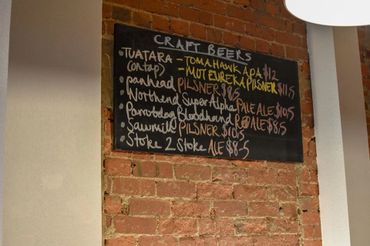 CRAFT BEERS
• TUATARA - TOMAHAWK APA $12
(on tap) - MOTEUREKA PILSNER $11.5
• panhead PILSNER $8.5
• Northend Super Alpha PALE ALE $10.5
• Parrotdog Bloodhound RED ALE $8.5
• Sawmill PILSNER $10.5
• Stoke 2 Stoke ALE $8.5